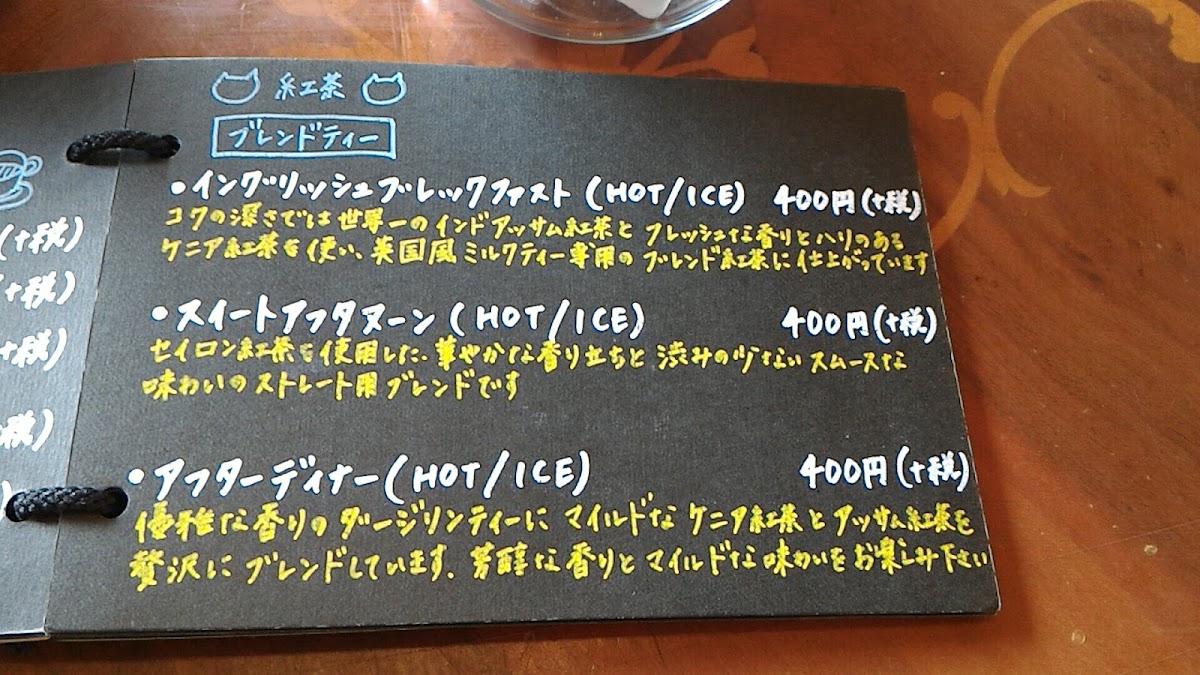 紅茶
ブレンドティー
・イングリッシュブレックファスト (HOT/ICE) 400円(+税)
コクの深さでは世界一のインドアッサム紅茶と フレッシュな香りとハリのある
ケニア紅茶を使い、英国風ミルクティー専用の ブレンド紅茶に仕上がっています
・スイートアフタヌーン (HOT/ICE) 400円(+税)
セイロン紅茶を使用した、華やかな香り立ちと 渋みの少ないスムースな
味わいのストレート用ブレンドです
・アフターディナー(HOT/ICE) 400円(+税)
優雅な香りのダージリンティーに マイルドなケニア紅茶とアッサム紅茶を
贅沢にブレンドしています。芳醇な香りとマイルドな味わいをお楽しみ下さい
(+税)
(+税)
(+税)
+税)